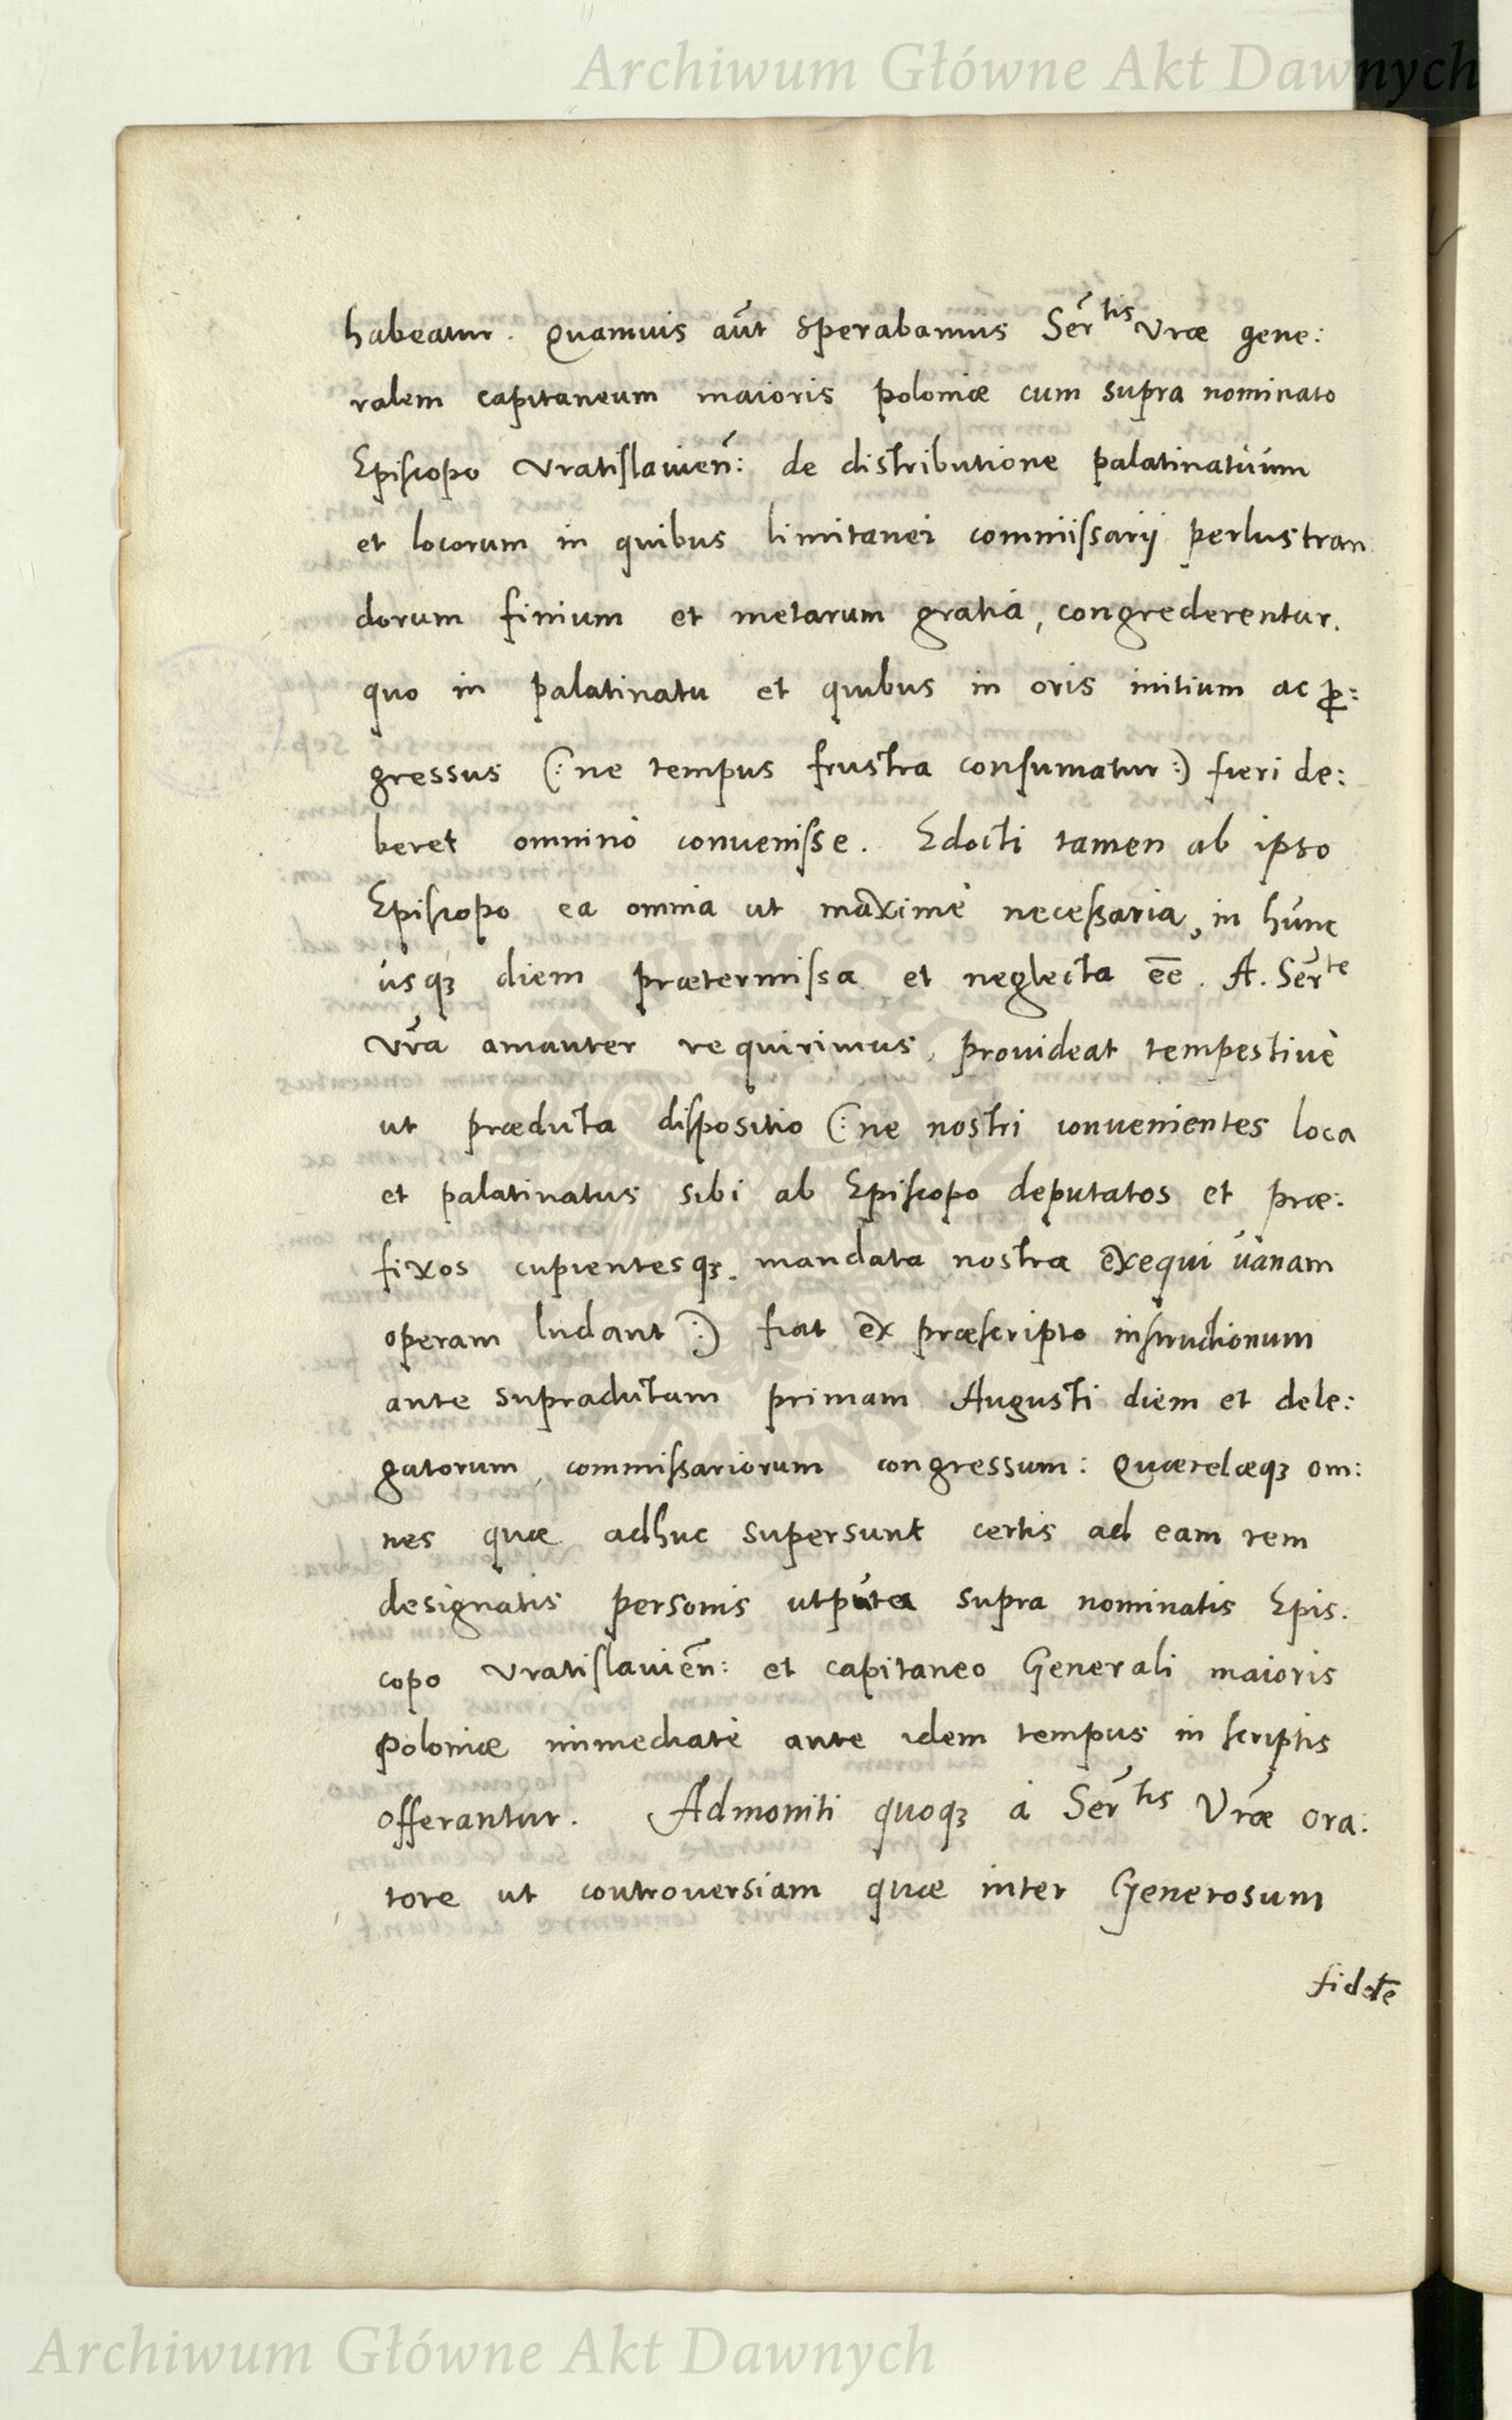 Archiwum Główne Akt Dawnych
habeatur. Quamuis aũt sperabamus Serᵗⁱˢ Vræ gene:
ralem capitaneum maioris poloniæ cum supra nominato
Episcopo Vratislauieñ: de distributione palatinatuum
et locorum in quibus limitanei commissarij perlustran
dorum finium et metarum gratia, congrederentur.
quo in palatinatu et quibus in oris initium ac ꝓ:
gressus (: ne tempus frustra consumatur :) fieri de:
beret omninò conuenisse. Edocti tamen ab ipso
Episcopo ea omnia ut maximè necessaria, in hunc
usqꝫ diem prætermissa et neglecta eẽ. A. Serᵗᵉ
Vrã amanter requirimus, prouideat tempestiuè
ut prædicta dispositio (: ne nostri conuenientes loca
et palatinatus sibi ab Episcopo deputatos et præ:
fixos cupientesqꝫ mandata nostra exequi uanam
operam ludant :) fiat ex præscripto instructionum
ante supradictam primam Augusti diem et dele:
gatorum commissariorum congressum: Quærelæqꝫ om:
nes quæ adhuc supersunt certis ad eam rem
designatis personis utputa supra nominatis Epis.
copo Vratislauieñ: et capitaneo Generali maioris
Poloniæ immediatè ante idem tempus in scriptis
offerantur. Admoniti quoqꝫ à Serᵗⁱˢ Vræ ora:
tore ut controuersiam quæ inter Generosum
Archiwum Główne Akt Dawnych